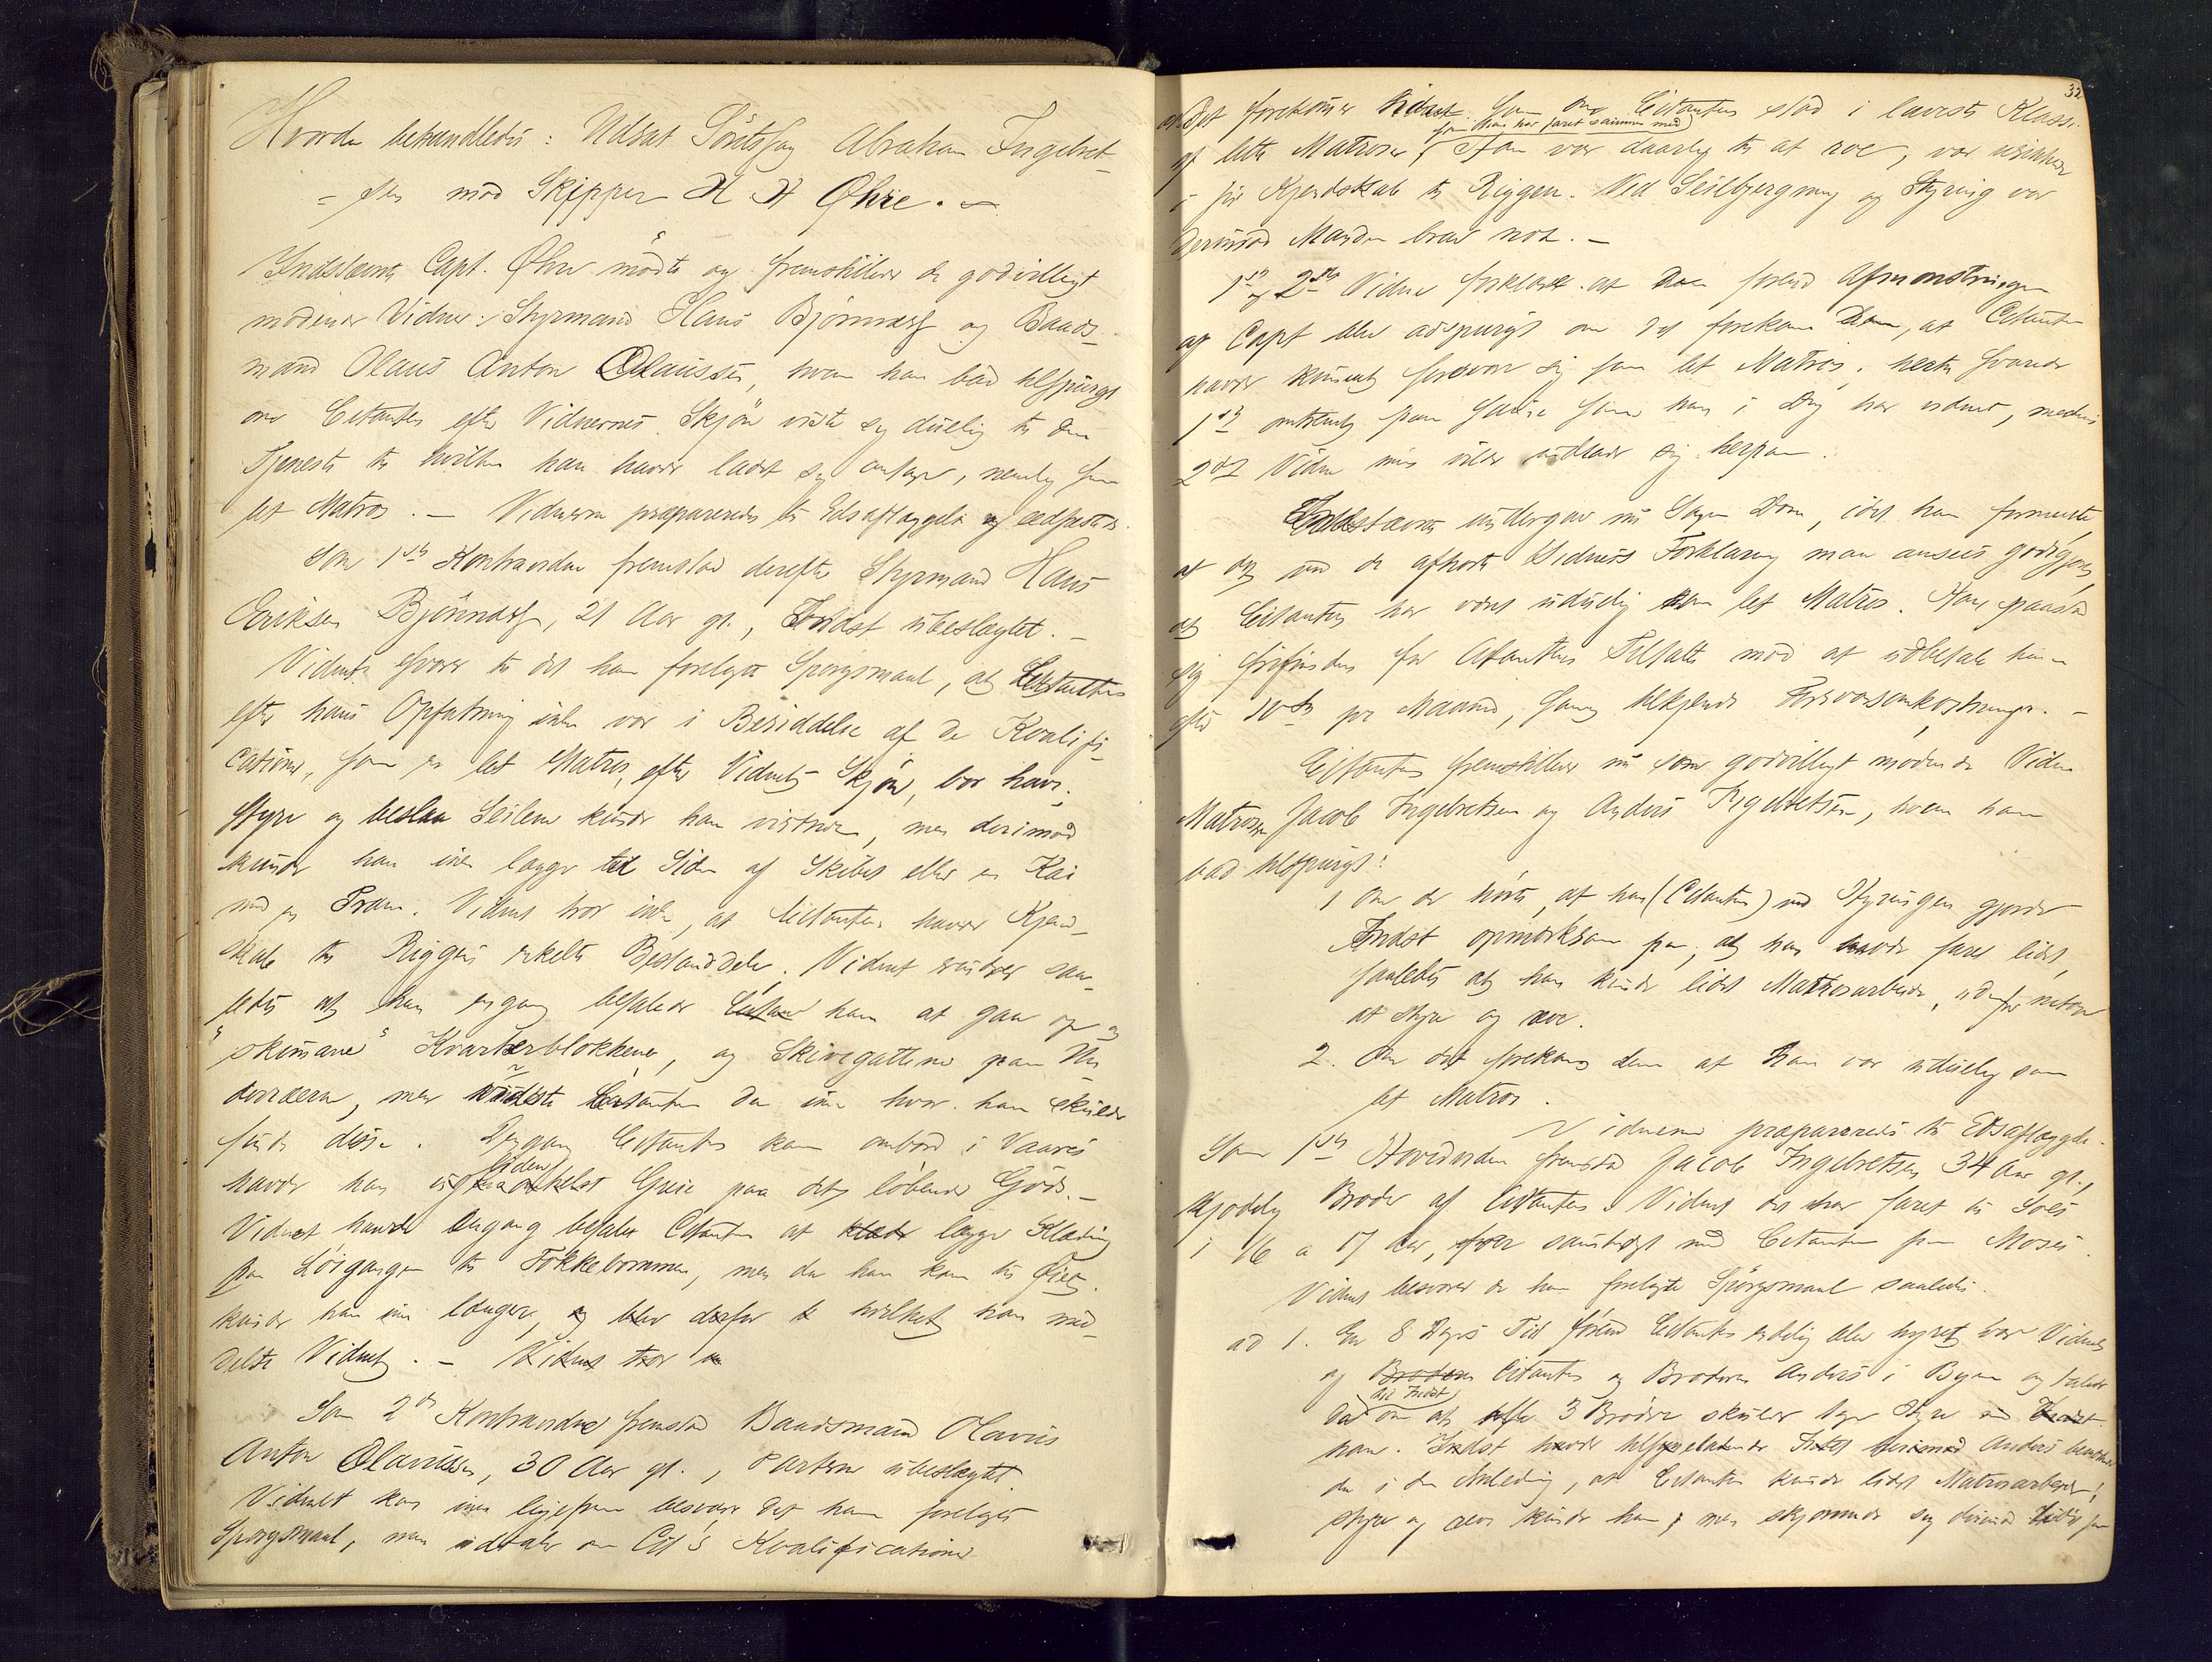 Hvorda behandledes: Udsat Søretssag Abraham Ingebret-
-sen mod Skipper H H Øhre. -
Indstævnte Capt. Øhre mødte og fremstillede de godvilligt
mødende Vidner: Styrmand Hans Bjønness og Baads-
mand Olaus Anton Olaussen, hvem han bad tilspurgt
om Citanten efter Vidnernes Skjøn viste sig duelig til den
Tjeneste til hvilken han havde ladet sig antage, nemlig som
let Matros. - Vidnerne præpareredes til Edsaflæggelse og edfæstedes.
Som 1ste Kontravidne fremstod derefter Styrmand Hans
Eriksen Bjønness, 21 Aar gl., Indst ubeslægtet. -
Vidnet svarer til det ham forelagte Spørgsmaal, at Citanten
efter hans Opfatning ikke var i Besiddelse af de Kvalifi-
cationer, som en let Matros, efter Vidnets Skjøn, bør have.
Styre og beslaa Seilene kunde han vistnok, men derimod
kunde han ikke lægge til Siden af Skibet eller en Kai
med en Pram. Vidnet tror ikke, at Citanten havde Kjend-
skab til Riggens enkelte Bestanddele. Vidnet erindrer saa-
ledes at han engang befalede Citant ham at gaa op og
"skimane" Kvarterblokkene, og Skivegattene paa
men vidste Citanten da ikke hvor han skulde
finde disse. Dengang Citanten kom ombord i Vaares
havde han Greie paa det løbende Gods. -
Vidnet havde engang befalet Citanten at klæde lægge Klædning
paa Løigangen til Fokkebommen, men da han kom til Øiet
kunde han ikke længere, og blev derfor hvilket han med-
delte Vidnet. - Vidnet tror
Som 2det Kontravidne fremstod Baadsmand Olaus
Anton Olaussen, 30 Aar gl., Parterne ubeslægtet.
Vidnet kan ikke ligefrem besvare det ham forelagte
Spørgsmaal, men udtaler om Cit's Kvalificationer
32
at Det forekommer Vidnet som om Citanten stod i laveste Klasse
af lette Matroser, som han har faret sammen med Han var daarlig til at roe, var
i sin Kjendskab til Riggen. Ved Seilbjergning og Styring var
derimod Manden brav nok. -
1ste og 2det Vidne forklarer at de forend Afmønstringen
af Capt blev adspurgt om det forekom dem, at Citanten
havde kunnet forsvare sig som let Matros; hertil svarede
1ste omtrentlig paa samme Maade som han i Dag har vidnet, medens
2det Vidne ikke vilde udlade sig herpaa.
Indstævnte undergav nu Sagen Dom, idet han formente
at det ved de afhørte Vidners Forklaring maa ansees godtgjort,
at Citanten har været uduelig som let Matros. Han paastod
sig frifunden for Citantens Tiltale mod at udbetale ham
efter 30 Kr pr Maaned, samt tilkjendt Forsvarsomkostninger. -
Citanten fremstillede nu som godvilligt mødende Vidner
Matroserne Jacob Ingebretsen og Anders Ingebretsen, hvem han
bad tilspurgt:
1 Om de hørte, at han (Citanten) ved Hyringen gjorde
Indst opmærksom paa, at han havde faret lidet,
saaledes at han kunde lidet Matrosarbeide, udenfor netop
at styre og roe.
2. Om det forekom dem at han var uduelig som
let Matros.
Vidnerne præpareredes til Edsaflæggelse.
Som 1ste Hovedvidne fremstod Jacob Ingebretsen 34 Aar gl.,
kjødelig Broder af Citanten. Vidnet der har faret til Søes
i 16 a 17 Aar, er samboende med Citanten paa Moss.
Vidnet besvarer de ham forelagte Spørgsmaal saaledes.
ad 1. En 8 Dages Tid førend Citanten endelig blev hyret var Vidnet
og Broderen Citanten og Broderen Anders i Byen og talede
da til Indst om at alle 3 Brødre skulde tage Hyre med Indst
ham. Anders bemærkede
da i den Anledning, at Citanten kunde lidet Matrosarbeide;
styre og roe kunde han, men